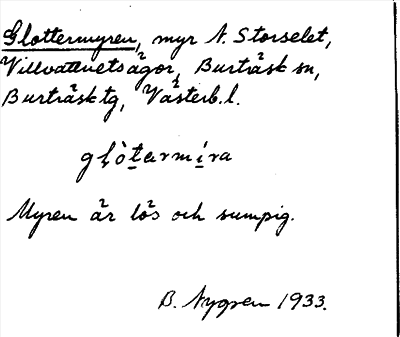 Glottermyren, myr N. Storselet,
Villvattnets ägor, Burträsk sn,
Burträsk tg, Västerb. l.
glòtermíra
Myren är lös och sumpig.
B. Nygren 1933.